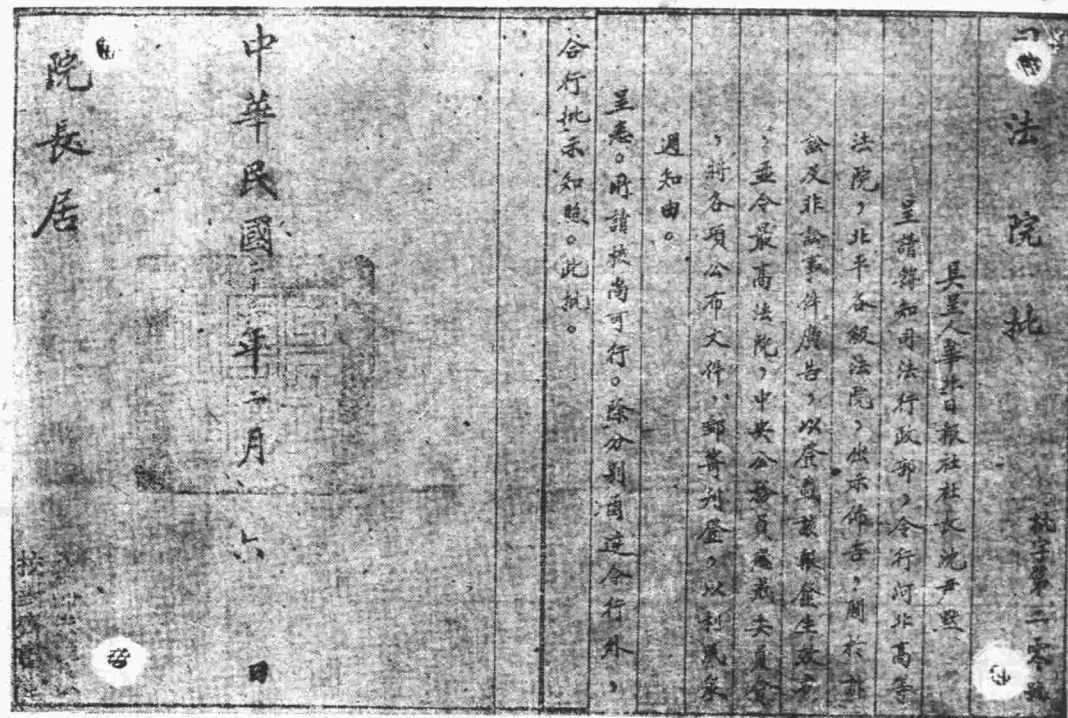 法院批
批字第二零號
具呈人華北日報社社長沈尹默
呈請轉知司法行政部,令行河北高等
法院,北平各級法院,佈告,關於訴
訟及非訟事件廣告,以登載該報發生效力
,並令最高法院,中央公務員懲戒委員會
,將各項公布文件,郵寄刊登,以利民眾
週知由。
呈悉。所請核尚可行。除分別函達令行外,
合行批示知照。此批。
中華民國二十 年二月六日
院長居